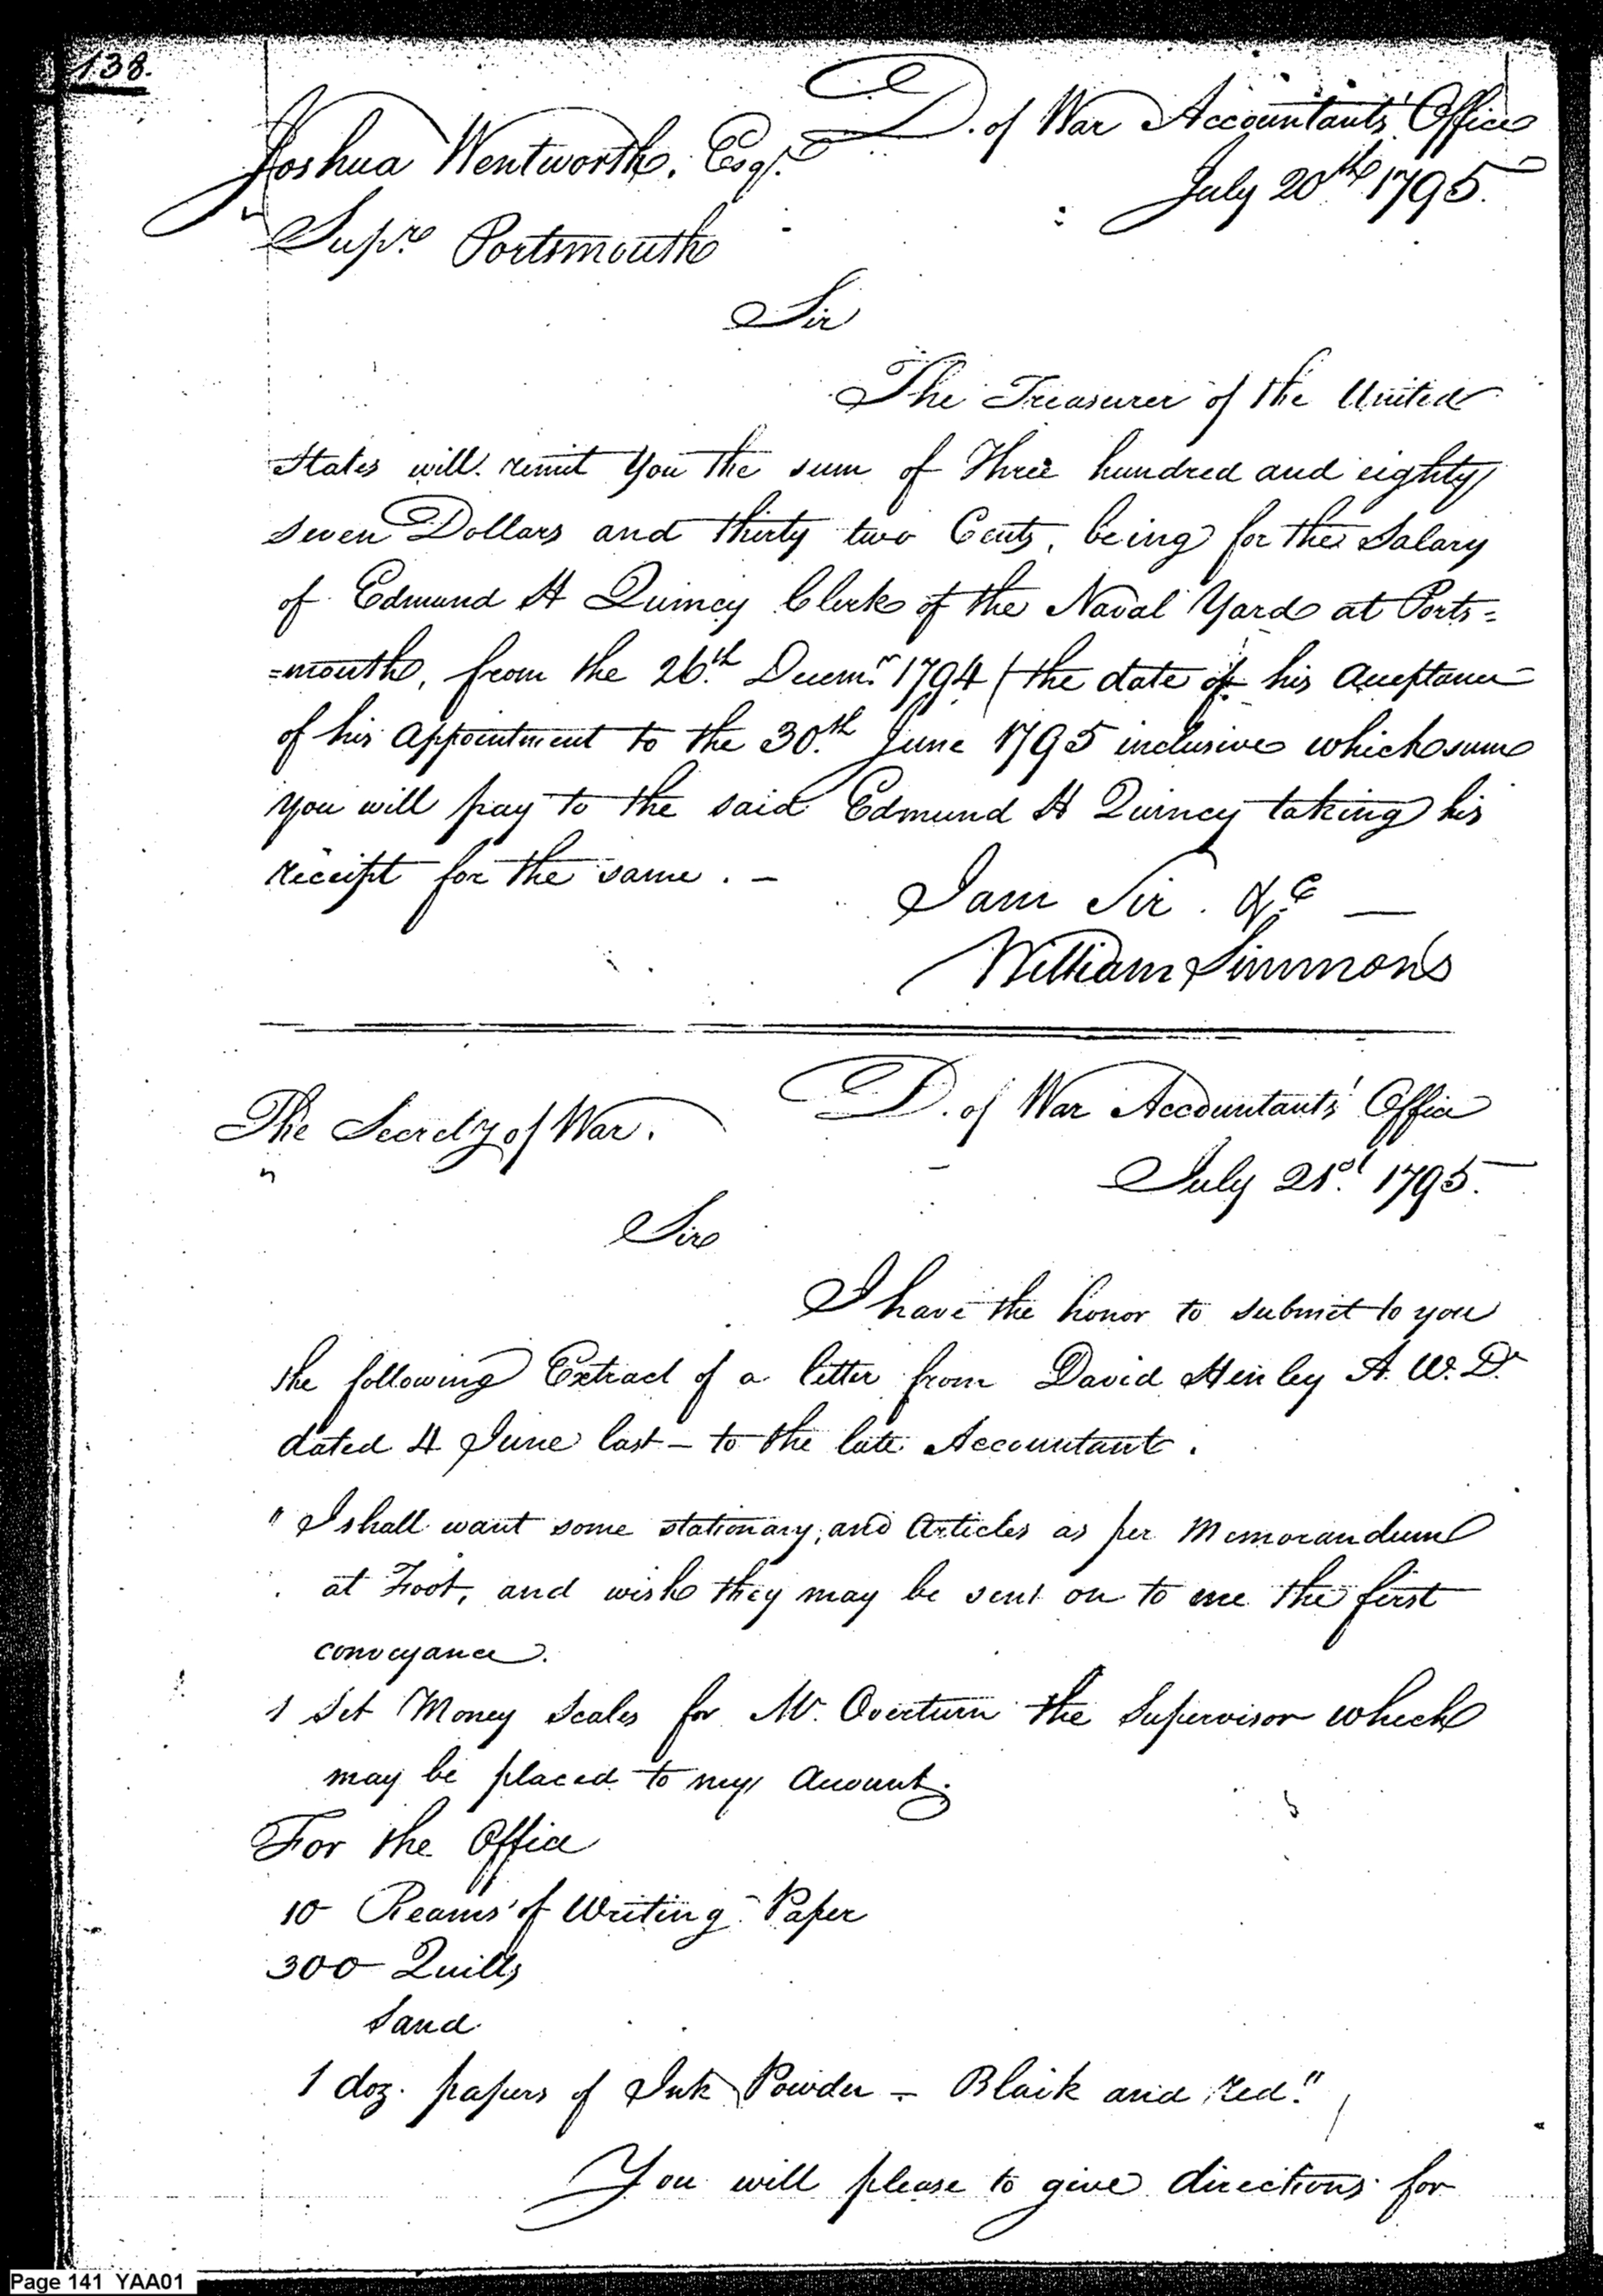 138.
D. of War Accountants' Office
Joshua Wentworth, Esqr.
July 20th 1795.
Supr. Portsmouth
Sir
The Treasurer of the United
States will remit you the sum of Three hundred and eighty
seven Dollars and thirty two Cents, being for the Salary
of Edmund H Quincy Clerk of the Naval Yard at Ports=
=mouth, from the 26th. Decemr. 1794 (the date of his acceptance
of his appointment to the 30th. June 1795 inclusive which sum
you will pay to the said Edmund H Quincy taking his
receipt for the same. —
I am Sir. &c —
William Simmons
D. of War Accountants' Office
The Secrety of War.
July 21st. 1795.
Sir
I have the honor to submit to you
the following Extract of a letter from David Henley A. W. D.
dated 4 June last — to the late Accountant.
" I shall want some stationary, and Articles as per Memorandum
at Foot, and wish they may be sent on to me the first
conveyance.
1 Set Money Scales for Mr. Overturn the Supervisor which
may be placed to my Account.
For the Office
10 Reams of Writing Paper
300 Quills
Sand
1 doz. papers of Ink Powder — Black and red."
You will please to give directions for
Page 141 YAA01